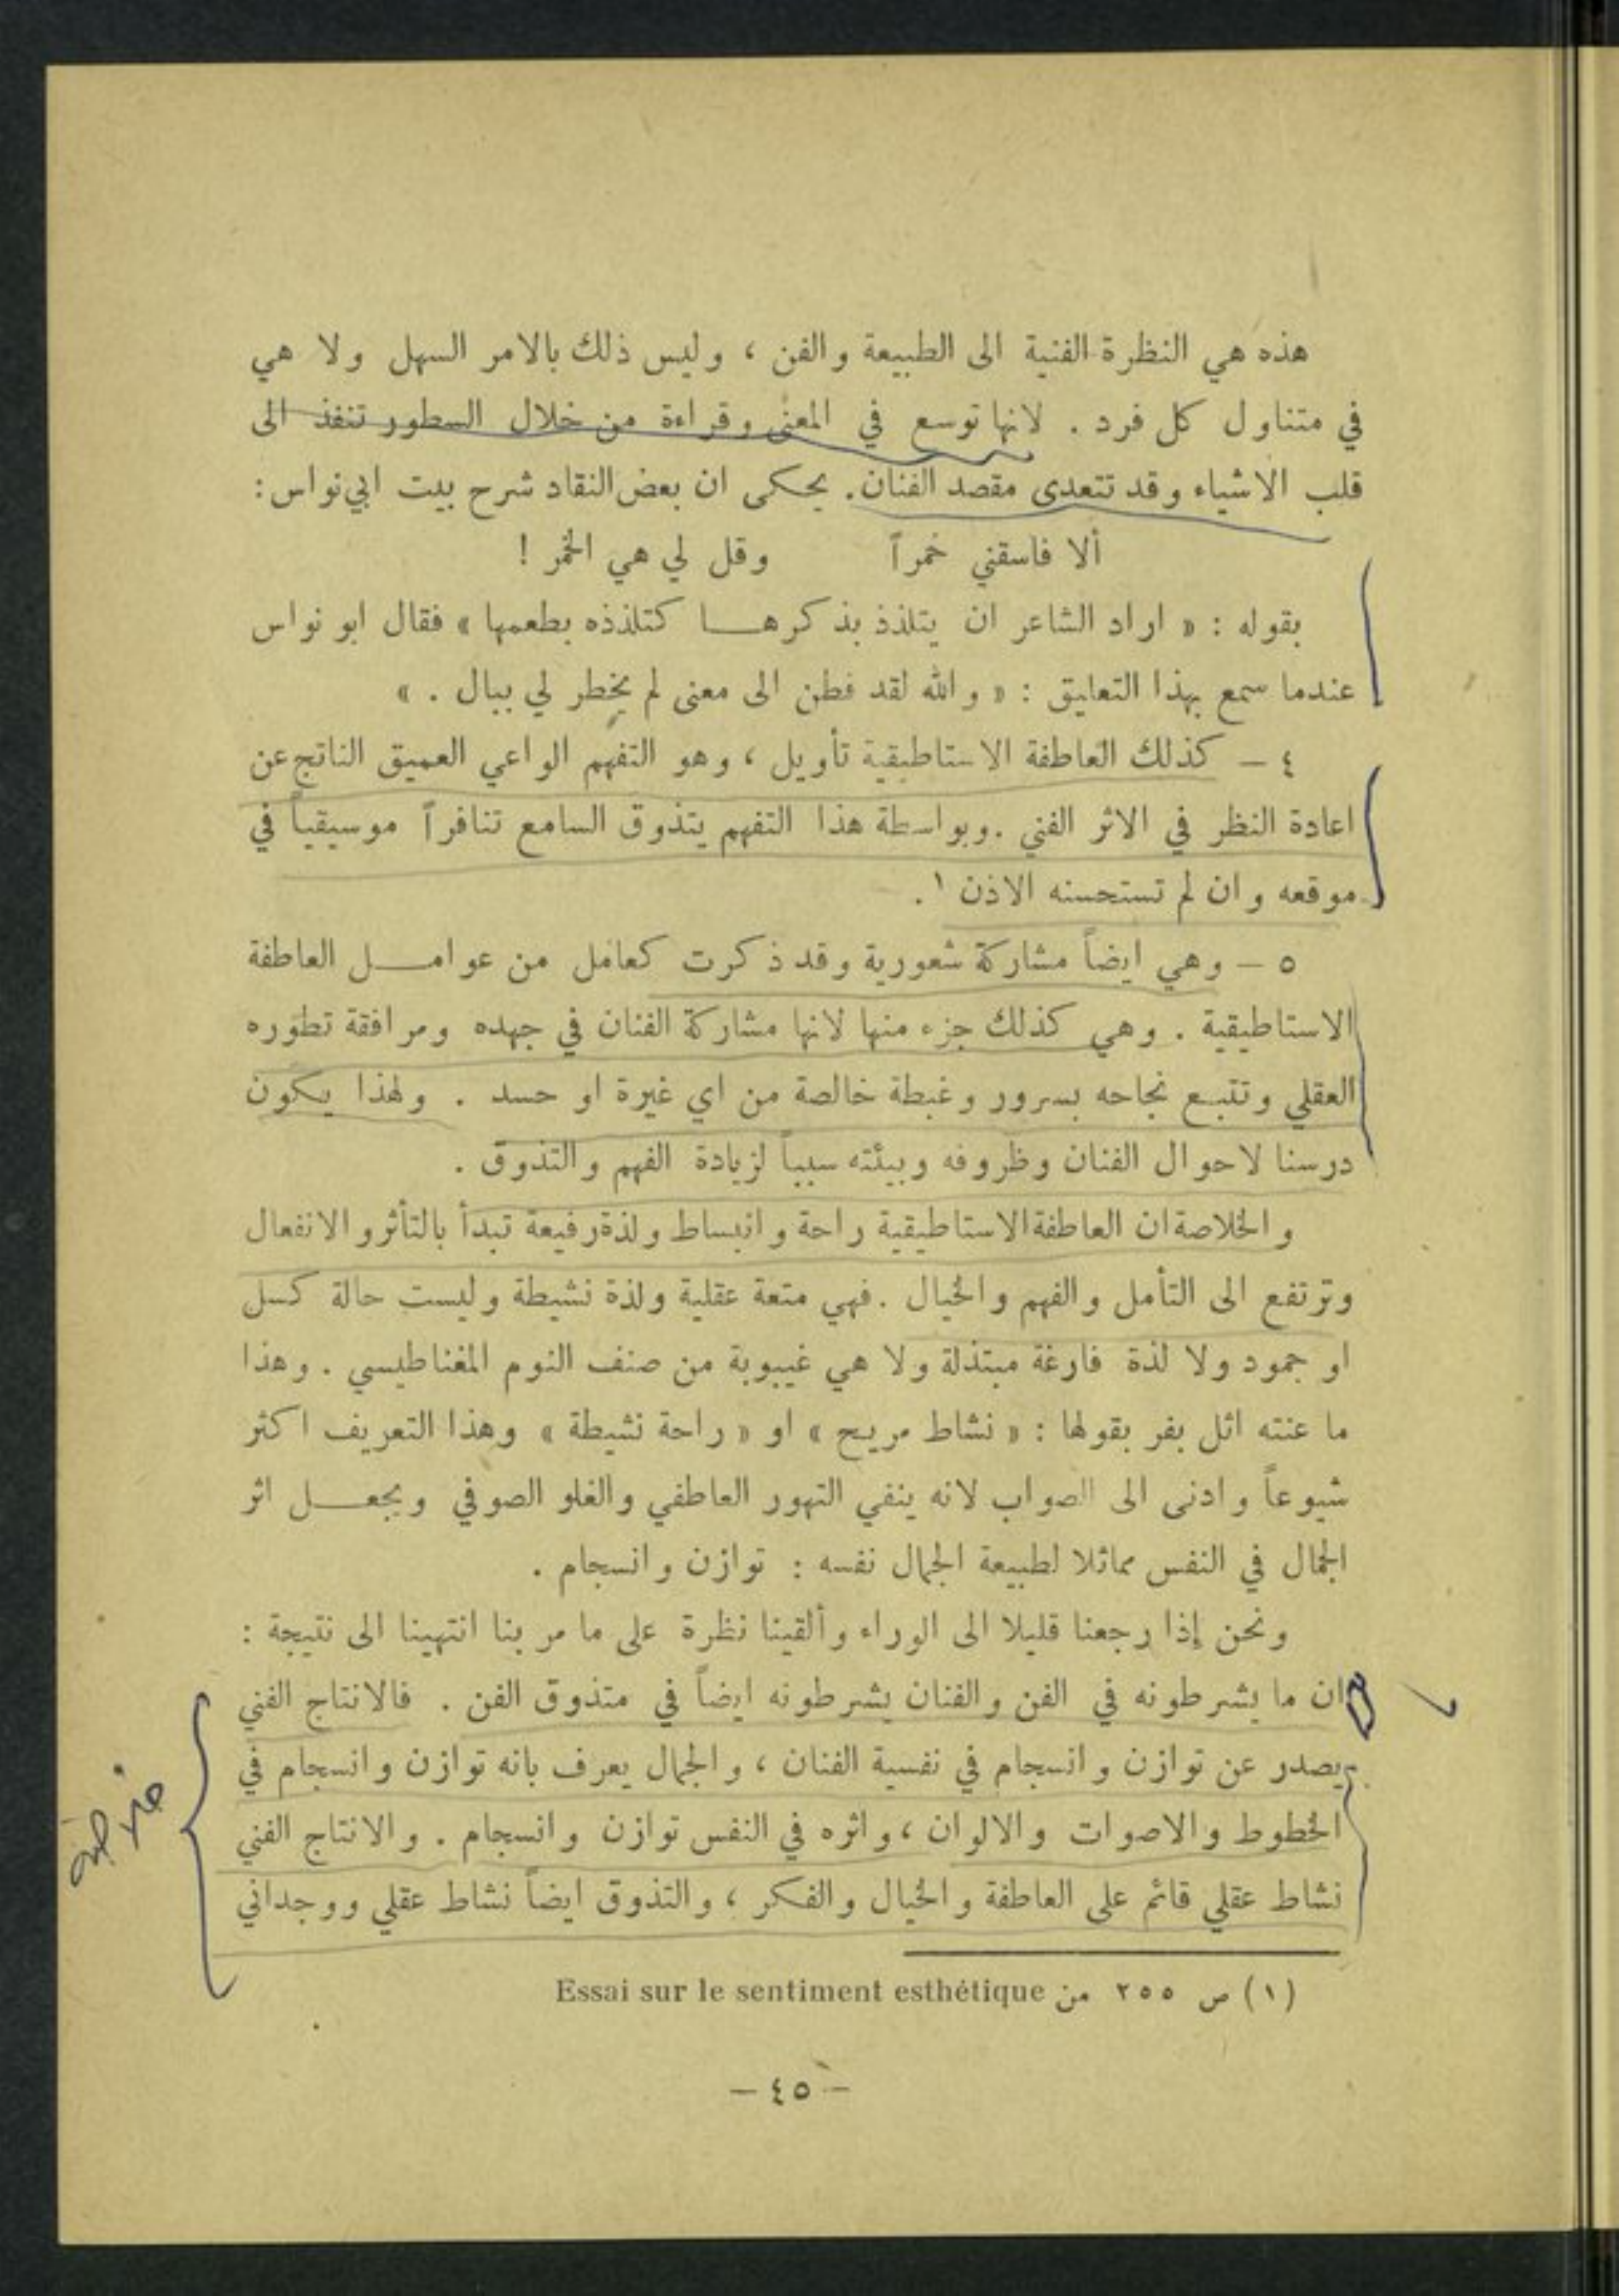 هذه هي النظرة الفنية الى الطبيعة والفن ، وليس ذلك بالامر السهل ولا هي
في متناول كل فرد . لانها توسع في المعنى وقراءة من خلال السطور تنفذ الى
قلب الاشياء وقد تتعدى مقصد الفنان . يحكى ان بعض النقاد شرح بيت ابي نواس :
ألا فاسقني خمراً وقل لي هي الخمر !
بقوله : « اراد الشاعر ان يتلذذ بذكرهـا كتلذذه بطعمها » فقال ابو نواس
عندما سمع بهذا التعليق : « والله لقد فطن الى معنى لم يخطر لي ببال . »
٤ – كذلك العاطفة الاستاطيقية تأويل ، وهو التفهم الواعي العميق الناتج عن
اعادة النظر في الاثر الفني . وبواسطة هذا التفهم يتذوق السامع تنافراً موسيقياً في
موقعه وان لم تستحسنه الاذن ١ .
٥ – وهي ايضاً مشاركة شعورية وقد ذكرت كعامل من عوامـل العاطفة
الاستاطيقية . وهي كذلك جزء منها لانها مشاركة الفنان في جهده ومرافقة تطوره
العقلي وتتبع نجاحه بسرور وغبطة خالصة من اي غيرة او حسد . ولهذا يكون
درسنا لاحوال الفنان وظروفه وبيئته سبباً لزيادة الفهم والتذوق .
والخلاصة ان العاطفة الاستاطيقية راحة وانبساط ولذة رفيعة تبدأ بالتأثر والانفعال
وترتفع الى التأمل والفهم والخيال . فهي متعة عقلية ولذة نشيطة وليست حالة كسل
او جمود ولا لذة فارغة مبتذلة ولا هي غيبوبة من صنف النوم المغناطيسي . وهذا
ما عنته اثل بفر بقولها : « نشاط مريح » او « راحة نشيطة » وهذا التعريف اكثر
شيوعاً وادنى الى الصواب لانه ينفي التهور العاطفي والغلو الصوفي ويجعـل اثر
الجمال في النفس مماثلا لطبيعة الجمال نفسه : توازن وانسجام .
ونحن إذا رجعنا قليلا الى الوراء وألقينا نظرة على ما مر بنا انتهينا الى نتيجة :
ان ما يشرطونه في الفن والفنان يشرطونه ايضاً في متذوق الفن . فالانتاج الفني
يصدر عن توازن وانسجام في نفسية الفنان ، والجمال يعرف بانه توازن وانسجام في
الخطوط والاصوات والالوان ، واثره في النفس توازن وانسجام . والانتاج الفني
نشاط عقلي قائم على العاطفة والخيال والفكر ، والتذوق ايضاً نشاط عقلي ووجداني
(١) ص ٢٥٥ من Essai sur le sentiment esthétique
– ٤٥ –